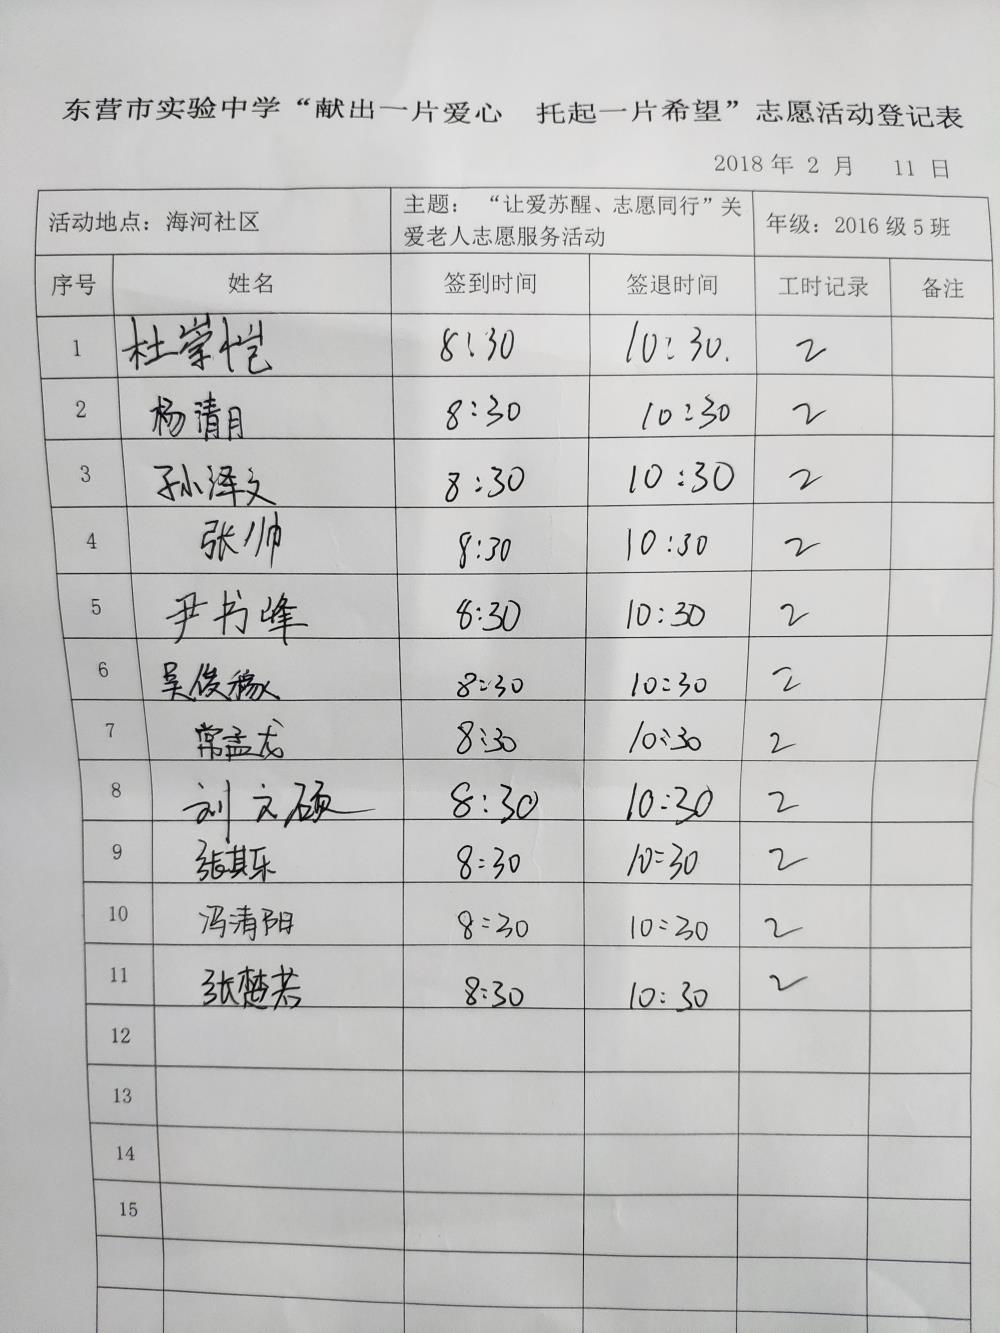 东营市实验中学“献出一片爱心 托起一片希望”志愿活动登记表
2018 年 2 月 11 日
活动地点：海河社区 主题：“让爱苏醒、志愿同行”关爱老人志愿服务活动 年级：2016 级 5 班
序号 姓名 签到时间 签退时间 工时记录 备注
1 杜崇恺 8:30 10:30. 2
2 杨清月 8:30 10:30 2
3 孙泽文 8:30 10:30 2
4 张帅 8:30 10:30 2
5 尹书峰 8:30 10:30 2
6 吴俊 8:30 10:30 2
7 常孟龙 8:30 10:30 2
8 刘文硕 8:30 10:30 2
9 张其乐 8:30 10:30 2
10 冯清阳 8:30 10:30 2
11 张楚若 8:30 10:30 2
12
13
14
15